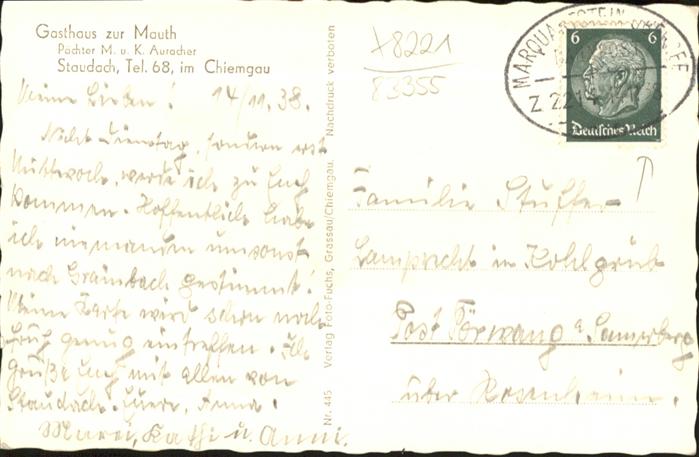 Gasthaus zur Mauth
Pächter M. u. K. Auracher
Staudach, Tel. 68, im Chiemgau
Meine Lieben! 14/11.38.
Nicht Dienstag, sondern erst
Mittwoch, werde ich zu Euch
kommen. Hoffentlich habe
ich niemanden umsonst
nach Grainbach gestimmt!
Meine Karte wird schon noch
früh genug eintreffen. Es
grüßt Euch mit allen von
Staudach. Eure Anna.
Marei, Kathi u. Anni.
Nr. 445 Verlag Foto-Fuchs, Grassau/Chiemgau. Nachdruck verboten
+8221
83355
6 6
Deutsches Reich
Z 22
Familie Stuffer
Lamprecht in Kohlgrub
Post Törwang a. Samerberg
über Rosenheim.